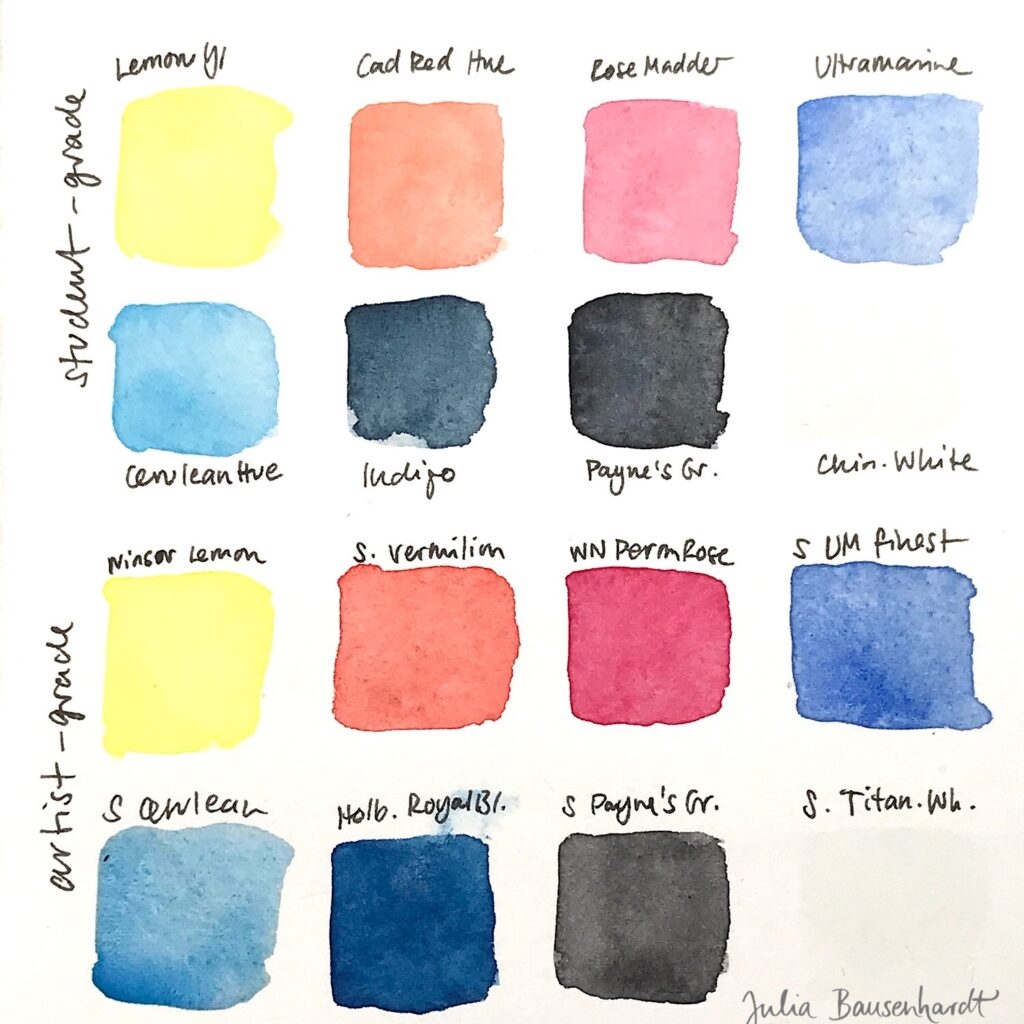 student-grade
Lemon Yl
Cad Red Hue
Rose Madder
Ultramarine
Cerulean Hue
Indigo
Payne's Gr.
Chin. White
artist-grade
Winsor Lemon
S. Vermilion
WN Perm Rose
S UM finest
S Cerulean
Holb. Royal Bl.
S Payne's Gr.
S. Titan. Wh.
Julia Bausenhardt